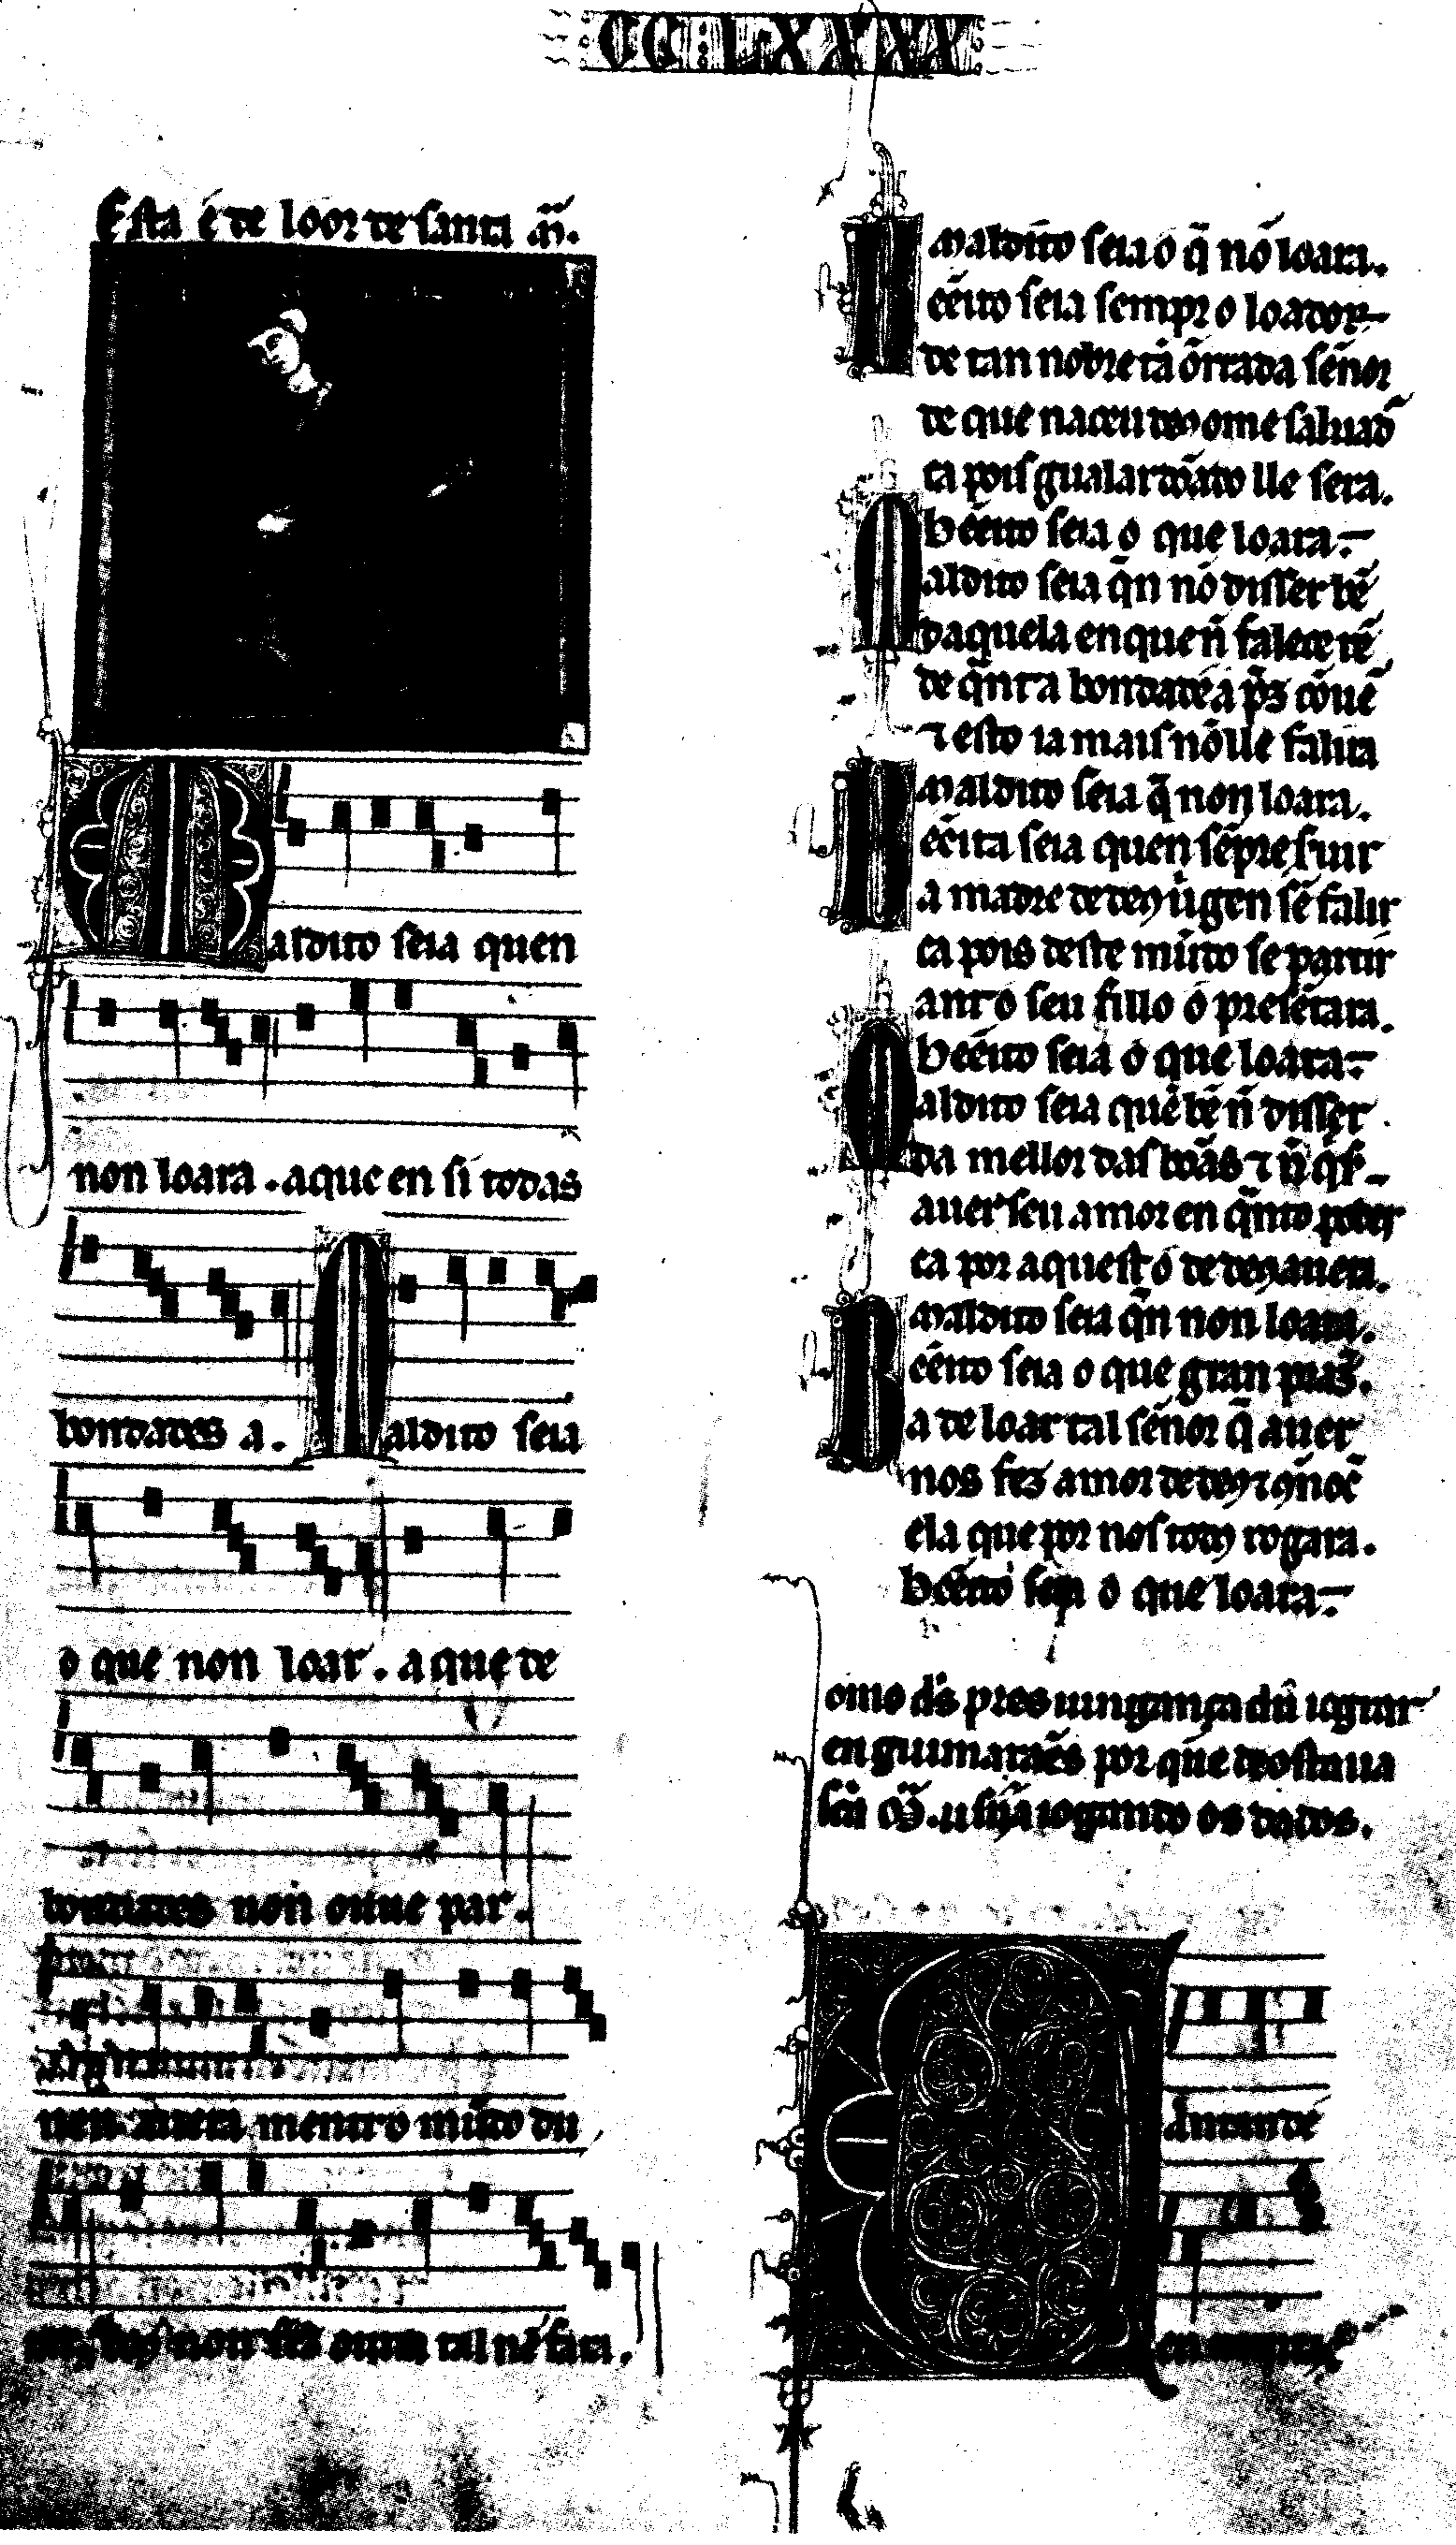 CC LXXXX
Esta é de loor de santa .m̃.
Maldito seia quen
non loara . aque en si todas
bondades a . Maldito seia
o que non loar . a que de
bondades non ouue par .
nen auera mentr o mũdo du
non fez outra tal nẽ fara .
maldito seia o q̃ nõ loara .
Bẽeito seia sempr o loador
de tan nobre tã õrrada sẽnor
de que naceu deꝯ ome saluadͬ
ca pois gualardõado lle sera .
bẽeito seia o que loara
Maldito seia q̃n nõ disser bẽ
daquela en que nͦ falece rẽ
de q̃nt a bondade a pͬz cõuẽ
⁊ esto ia mais nõ lle falira
maldito seia q̃ non loara .
Bẽeita seia quen sẽpre seruir
a madre de deꝯ uͥgen sẽ falir
ca pois deste mũdo se partir
ant o seu fillo o presẽtara .
bẽeito seia o que loara
Maldito seia quẽ bẽ nͦ disser
da mellor das bõas ⁊ nͦ q̃sͬ
auer seu amor en q̃nto poder
ca por aquest o de deꝯ auera .
maldito seia q̃n non loara .
Bẽeito seia o que gran praz̃ .
a de loar tal sẽnor q̃ auer
nos fez amor de deꝯ ⁊ ꝯnoc̃
ela que por nos todꝯ rogara .
bẽeito seia o que loara
omo dͬs pres uingança dũ iograr
en guimarães por que deostaua
scã M̃ . u siia iogando os dados .